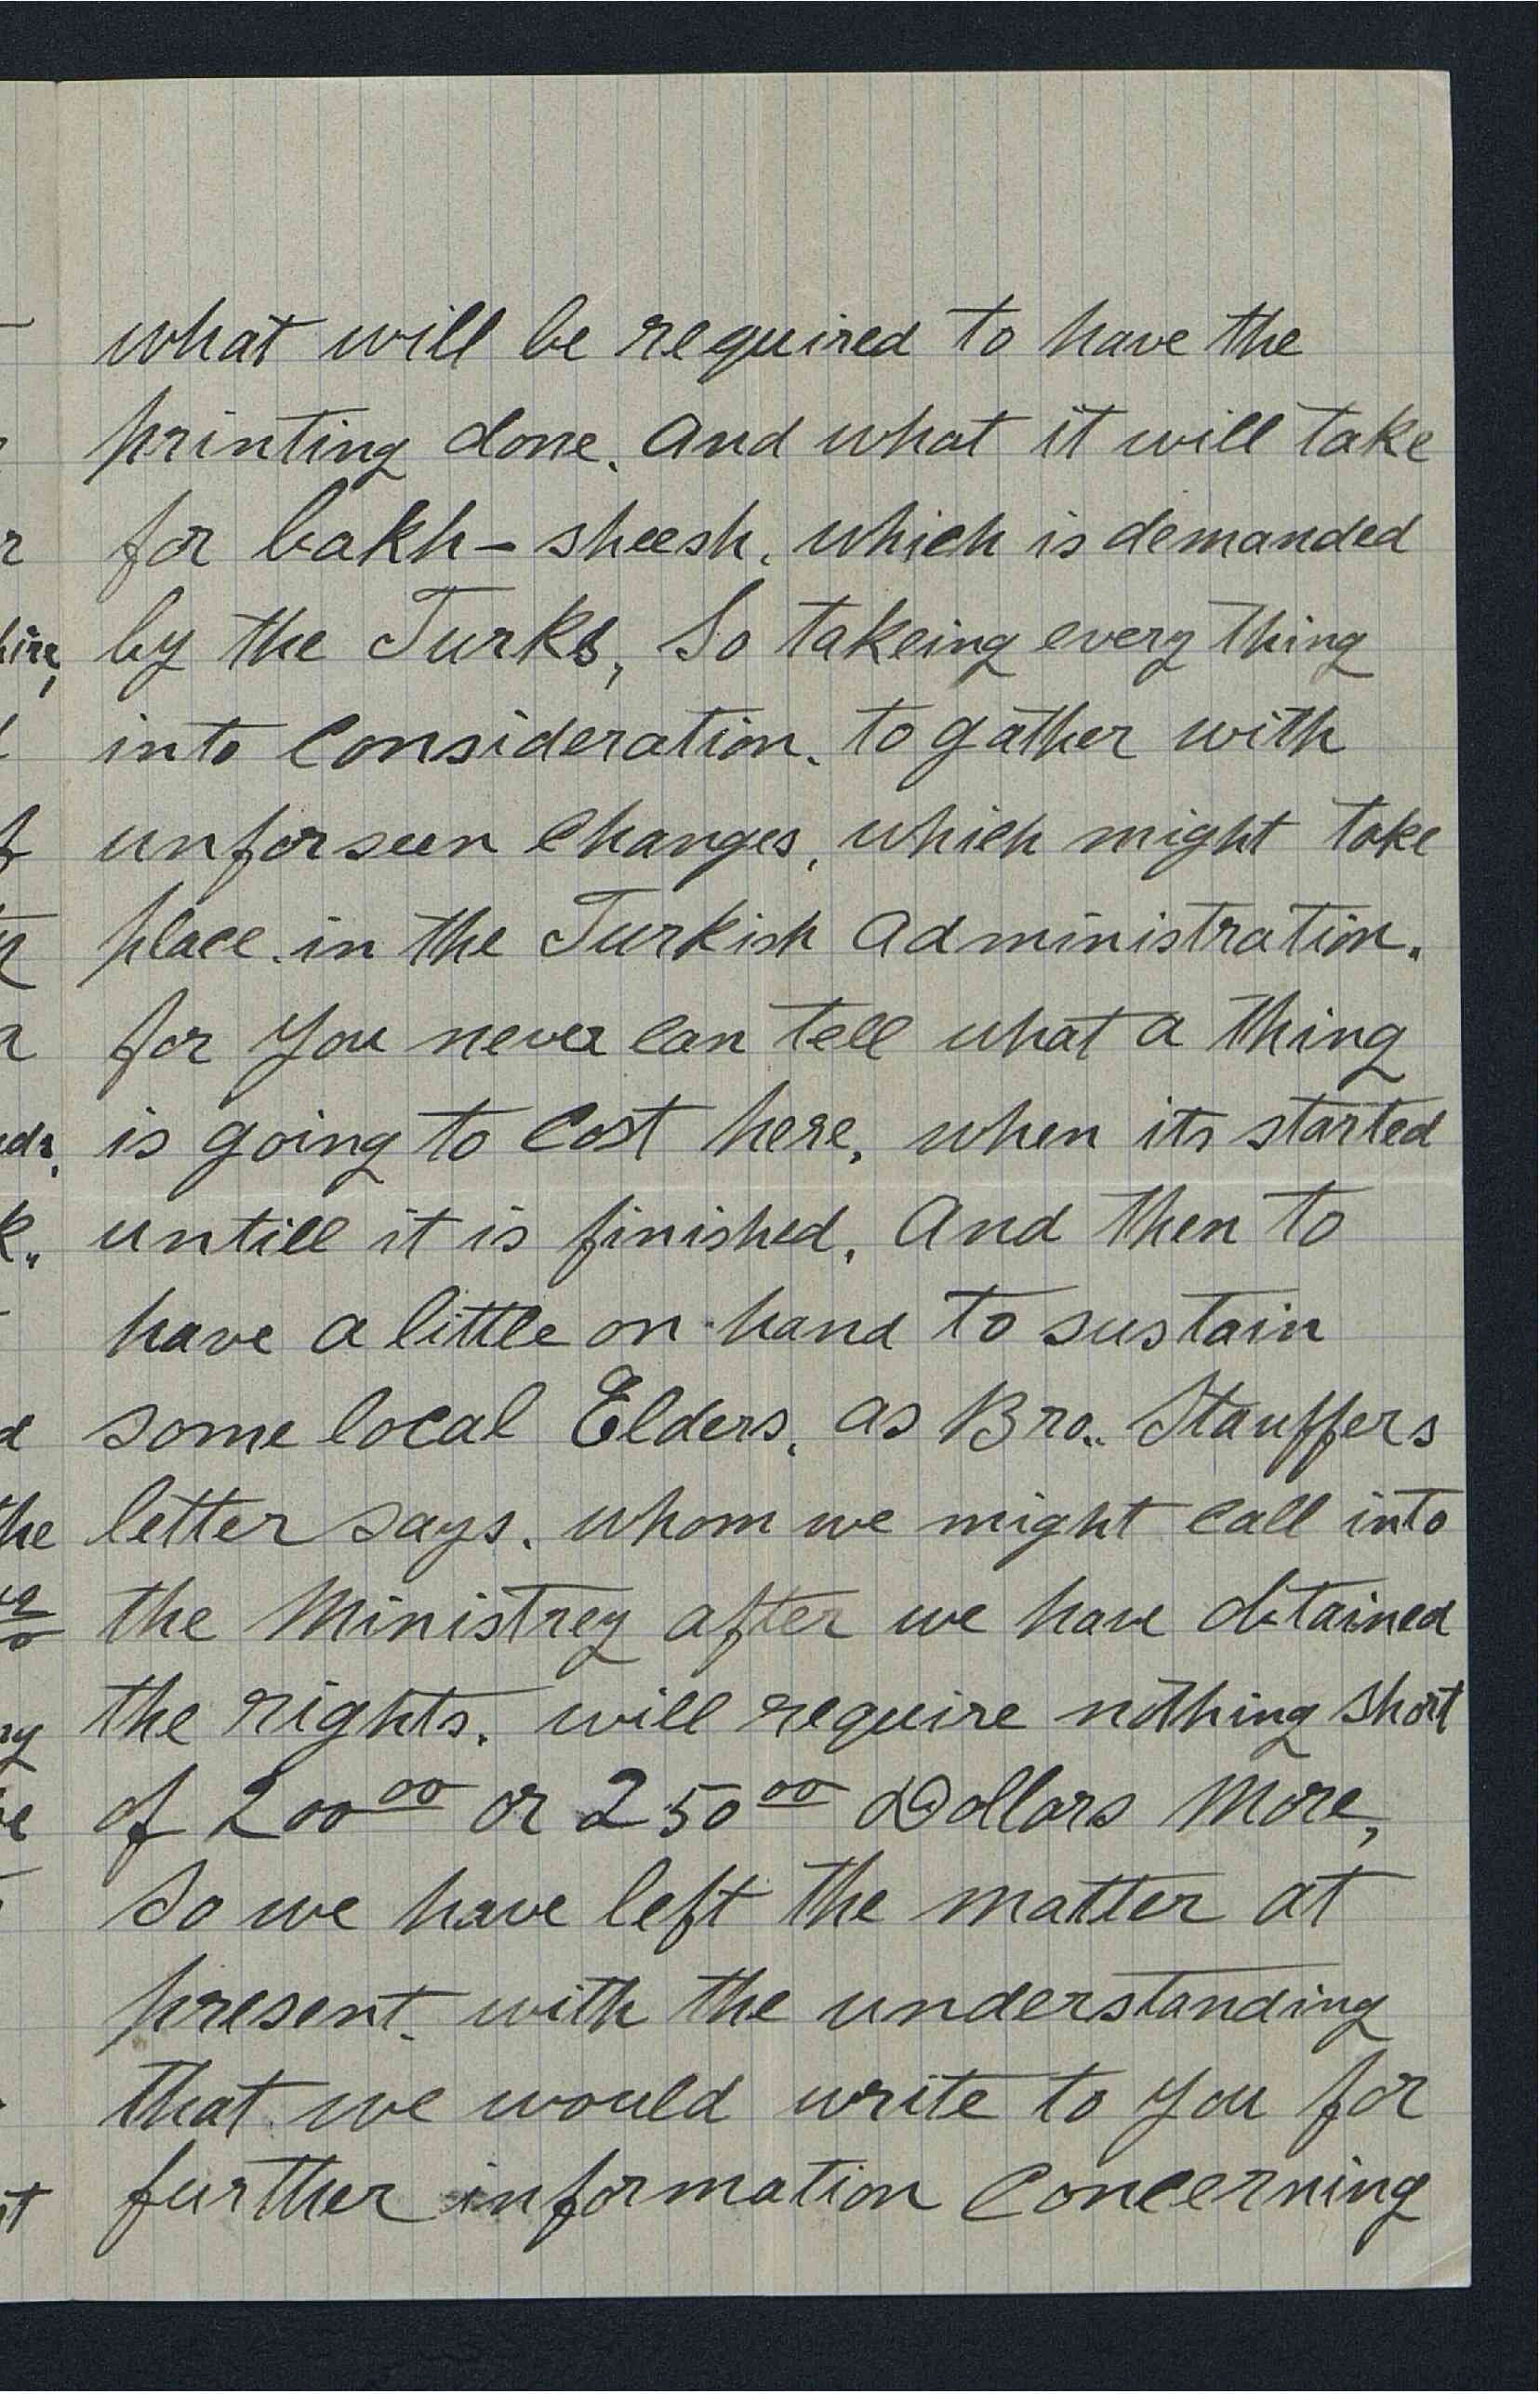 what will be required to have the
printing done. and what it will take
for bakh-sheesh, which is demanded
by the Turks, So takeing every thing
into consideration. to gather with
unforseen changes, which might take
place. in the Turkish administration.
for you never can tell what a thing
is going to cost here, when its started
untill it is finished. And then to
have a little on hand to sustain
some local Elders, as Bro. Stauffers
letter says. whom we might call into
the Ministrey after we have obtained
the rights. will require nothing short
of 200 00 or 250 00 Dollars more,
So we have left the matter at
present. with the understanding
that we would write to you for
further information concerning